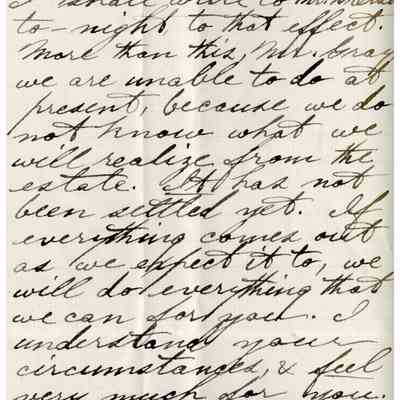 I shall write to Mr.
to-night to that effect.
More than this, Mr. Gray
we are unable to do at
present, because we do
not know what we
will realize from the
estate. It has not
been settled yet. If
everything comes out
as we expect it to, we
will do everything that
we can for you. I
understand your
circumstances, & feel
very much for you.